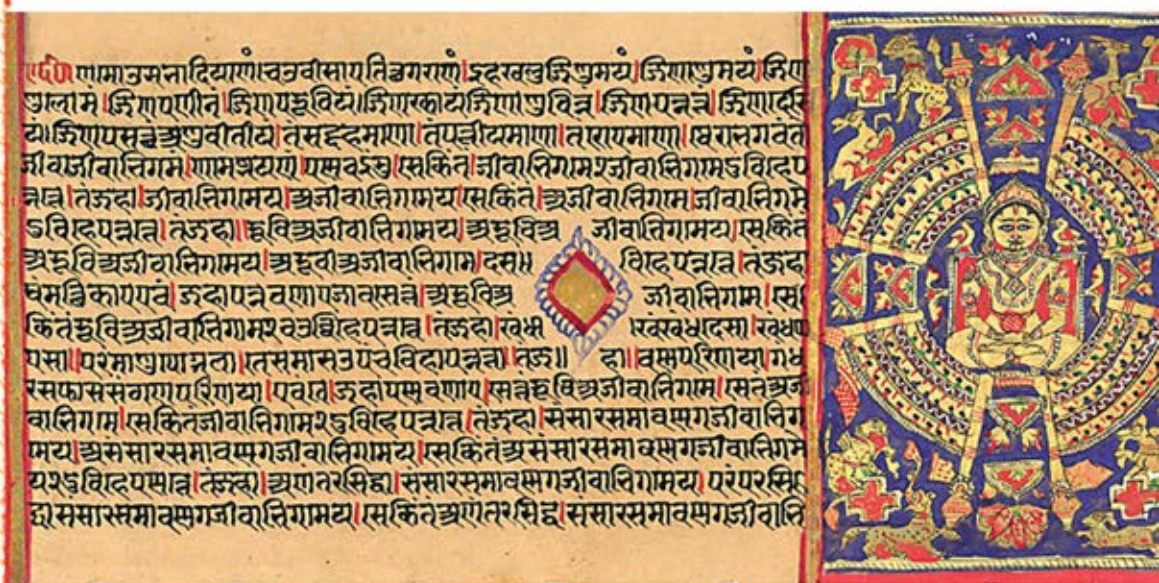 णमो उसभादियाणं चउवीसाए तित्थगराणं। इह खलु जिणमयं। जिणाणुमयं। जिणा
णुलोमं। जिणपणीतं। जिणपरूवियं। जिणक्खायं जिणाणुचिन्नं। जिणपन्नत्तं। जिणदेसि
यं। जिणपसत्थं अणुवीतीय। तं सद्दहमाणा। तं पत्तीयमाणा। तं रोएमाणा। थेरा भगवंतो
जीवाजीवाभिगमं। णामज्झयणं। पण्णवइंसु। से किं तं। जीवाभिगमे २ जीवाभिगमे दुविहे प
न्नत्ते। तं जहा। जीवाभिगमे य। अजीवाभिगमे य। से किं तं। अजीवाभिगमे। अजीवाभिगमे
दुविहे पन्नत्ते। तं जहा। रूविअजीवाभिगमे य। अरूविअ जीवाभिगमे य। से किं तं
अरूविअजीवाभिगमे य। अरूवीअजीवाभिगमे। दस॥ विहे पन्नत्ते। तं जहा
धम्मत्थिकाए एवं। जहा पन्नवणाए जाव सेत्तं। अरूविअ जीवाभिगमे। से
किं तं रूविअजीवाभिगमे २ चउव्विहे पन्नत्ते। तं जहा। खंधा खंधदेसा। खंधप
एसा॥ परमाणुपोग्गला। ते समासउ पंचविहा पन्नत्ता। तं ज॥ हा॥ वण्णपरिणया। गंध
रसफाससंठाणपरिणया। एवं तं। जहा पण्णवणाए। सेत्तं रूविअजीवाभिगमे। सेत्तं अजी
वाभिगमे। से किं तं जीवाभिगमे २ दुविहे पन्नत्ते। तं जहा। संसारसमावण्णगजीवाभिग
मे य। असंसारसमावण्णगजीवाभिगमे य। से किं तं असंसारसमावण्णगजीवाभिगमे
य २ दुविहे पण्णत्ते। तं जहा। अणंतरसिद्धा। संसारसमावण्णगजीवाभिगमे य। परंपरसि
द्धासंसारसमावण्णगजीवाभिगमे य। से किं तं अणंतरसिद्धा। संसारसमावण्णगजीवाभि